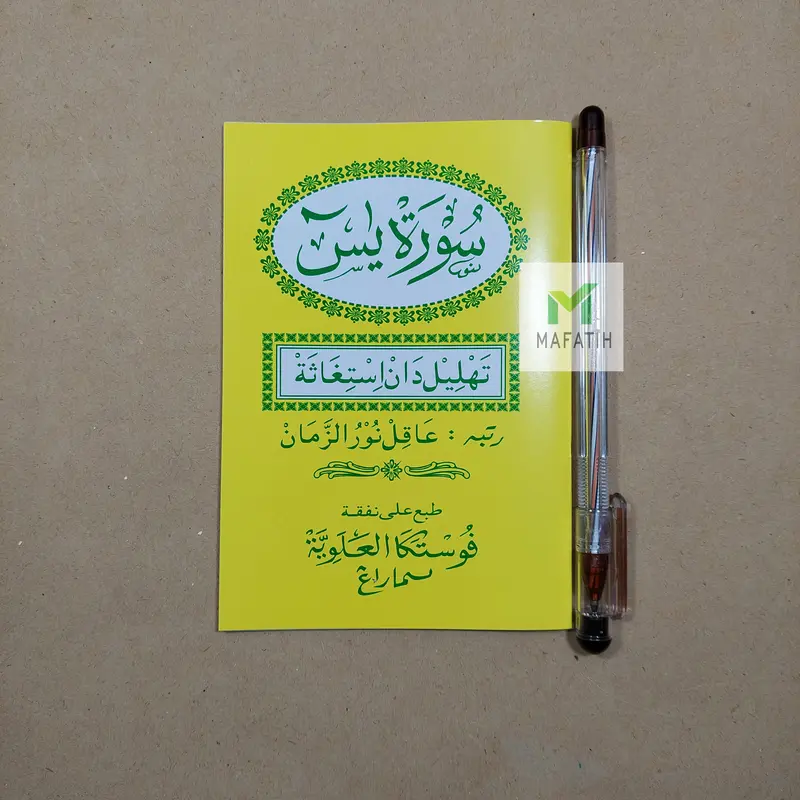 سُوْرَةْ يٰسٓ
تَهْلِيْل دَانْ اِسْتِغَاثَةْ
رتبه : عَاقِلْ نُوْرُ الزَّمَانْ
طبع على نفقة
فُوْسْتَكَا الْعَلَوِيَّةْ
سماراڠ
MAFATIH